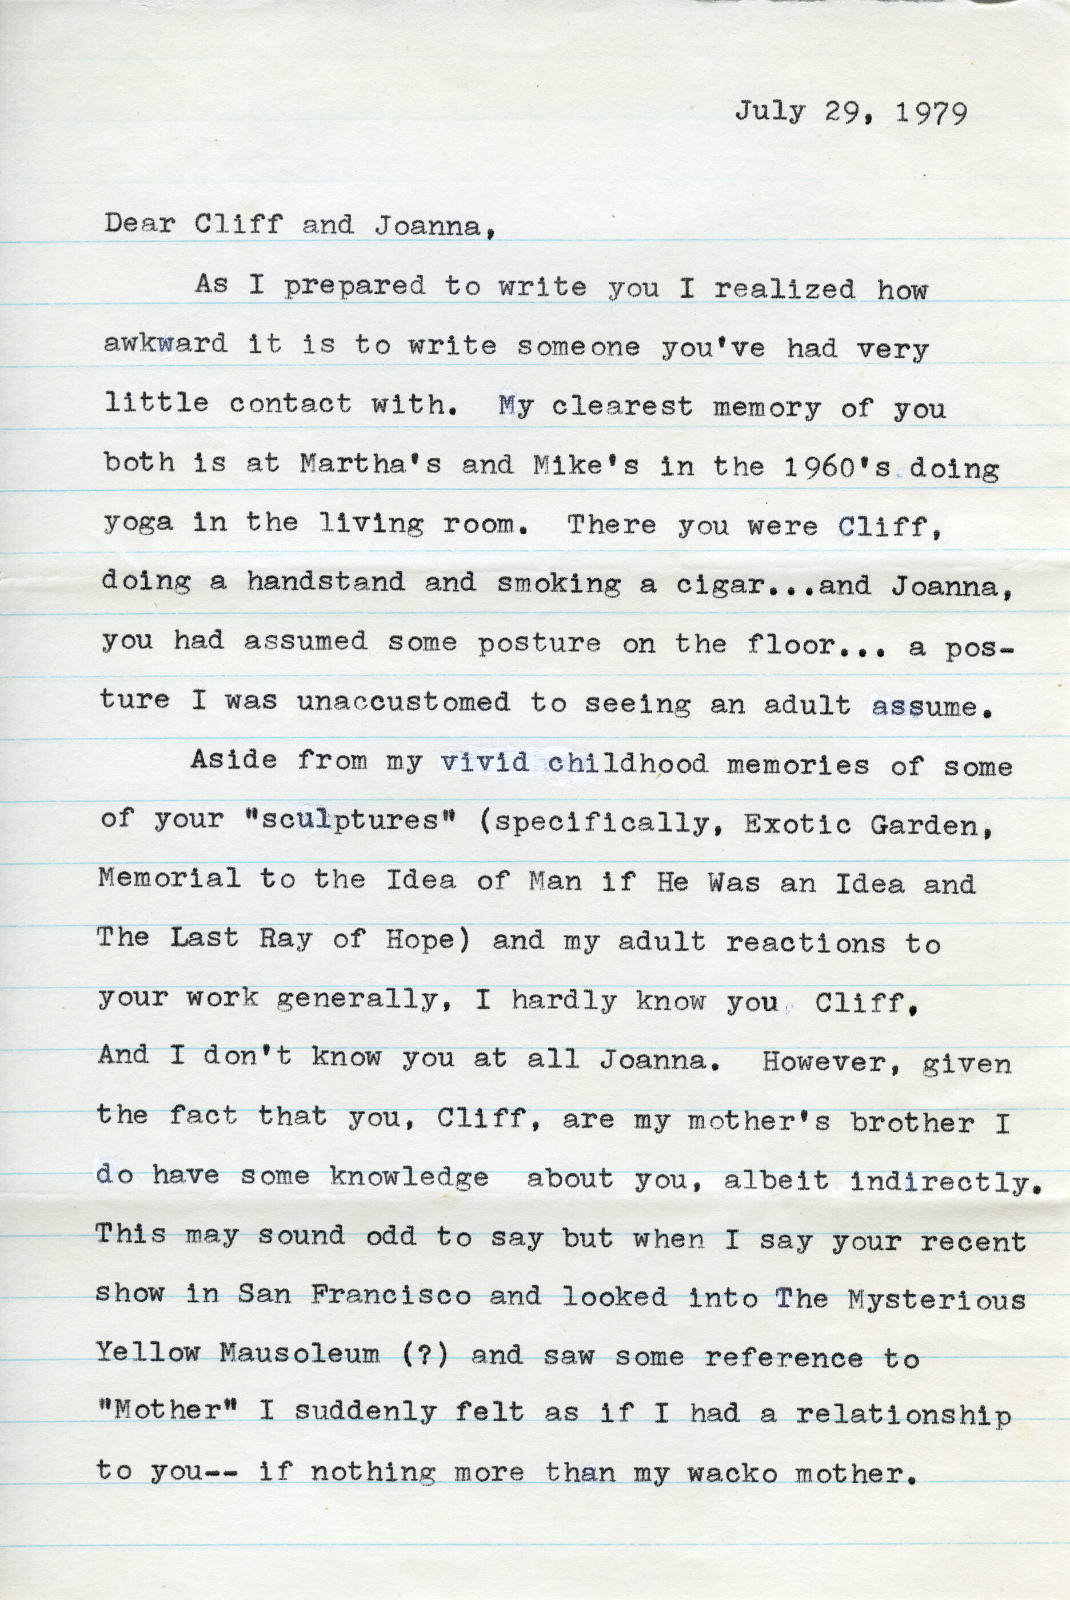 July 29, 1979
Dear Cliff and Joanna,
As I prepared to write you I realized how
awkward it is to write someone you've had very
little contact with. My clearest memory of you
both is at Martha's and Mike's in the 1960's doing
yoga in the living room. There you were Cliff,
doing a handstand and smoking a cigar...and Joanna,
you had assumed some posture on the floor... a pos-
ture I was unaccustomed to seeing an adult assume.
Aside from my vivid childhood memories of some
of your "sculptures" (specifically, Exotic Garden,
Memorial to the Idea of Man if He Was an Idea and
The Last Ray of Hope) and my adult reactions to
your work generally, I hardly know you Cliff.
And I don't know you at all Joanna. However, given
the fact that you, Cliff, are my mother's brother I
do have some knowledge about you, albeit indirectly.
This may sound odd to say but when I say your recent
show in San Francisco and looked into The Mysterious
Yellow Mausoleum (?) and saw some reference to
"Mother" I suddenly felt as if I had a relationship
to you-- if nothing more than my wacko mother.